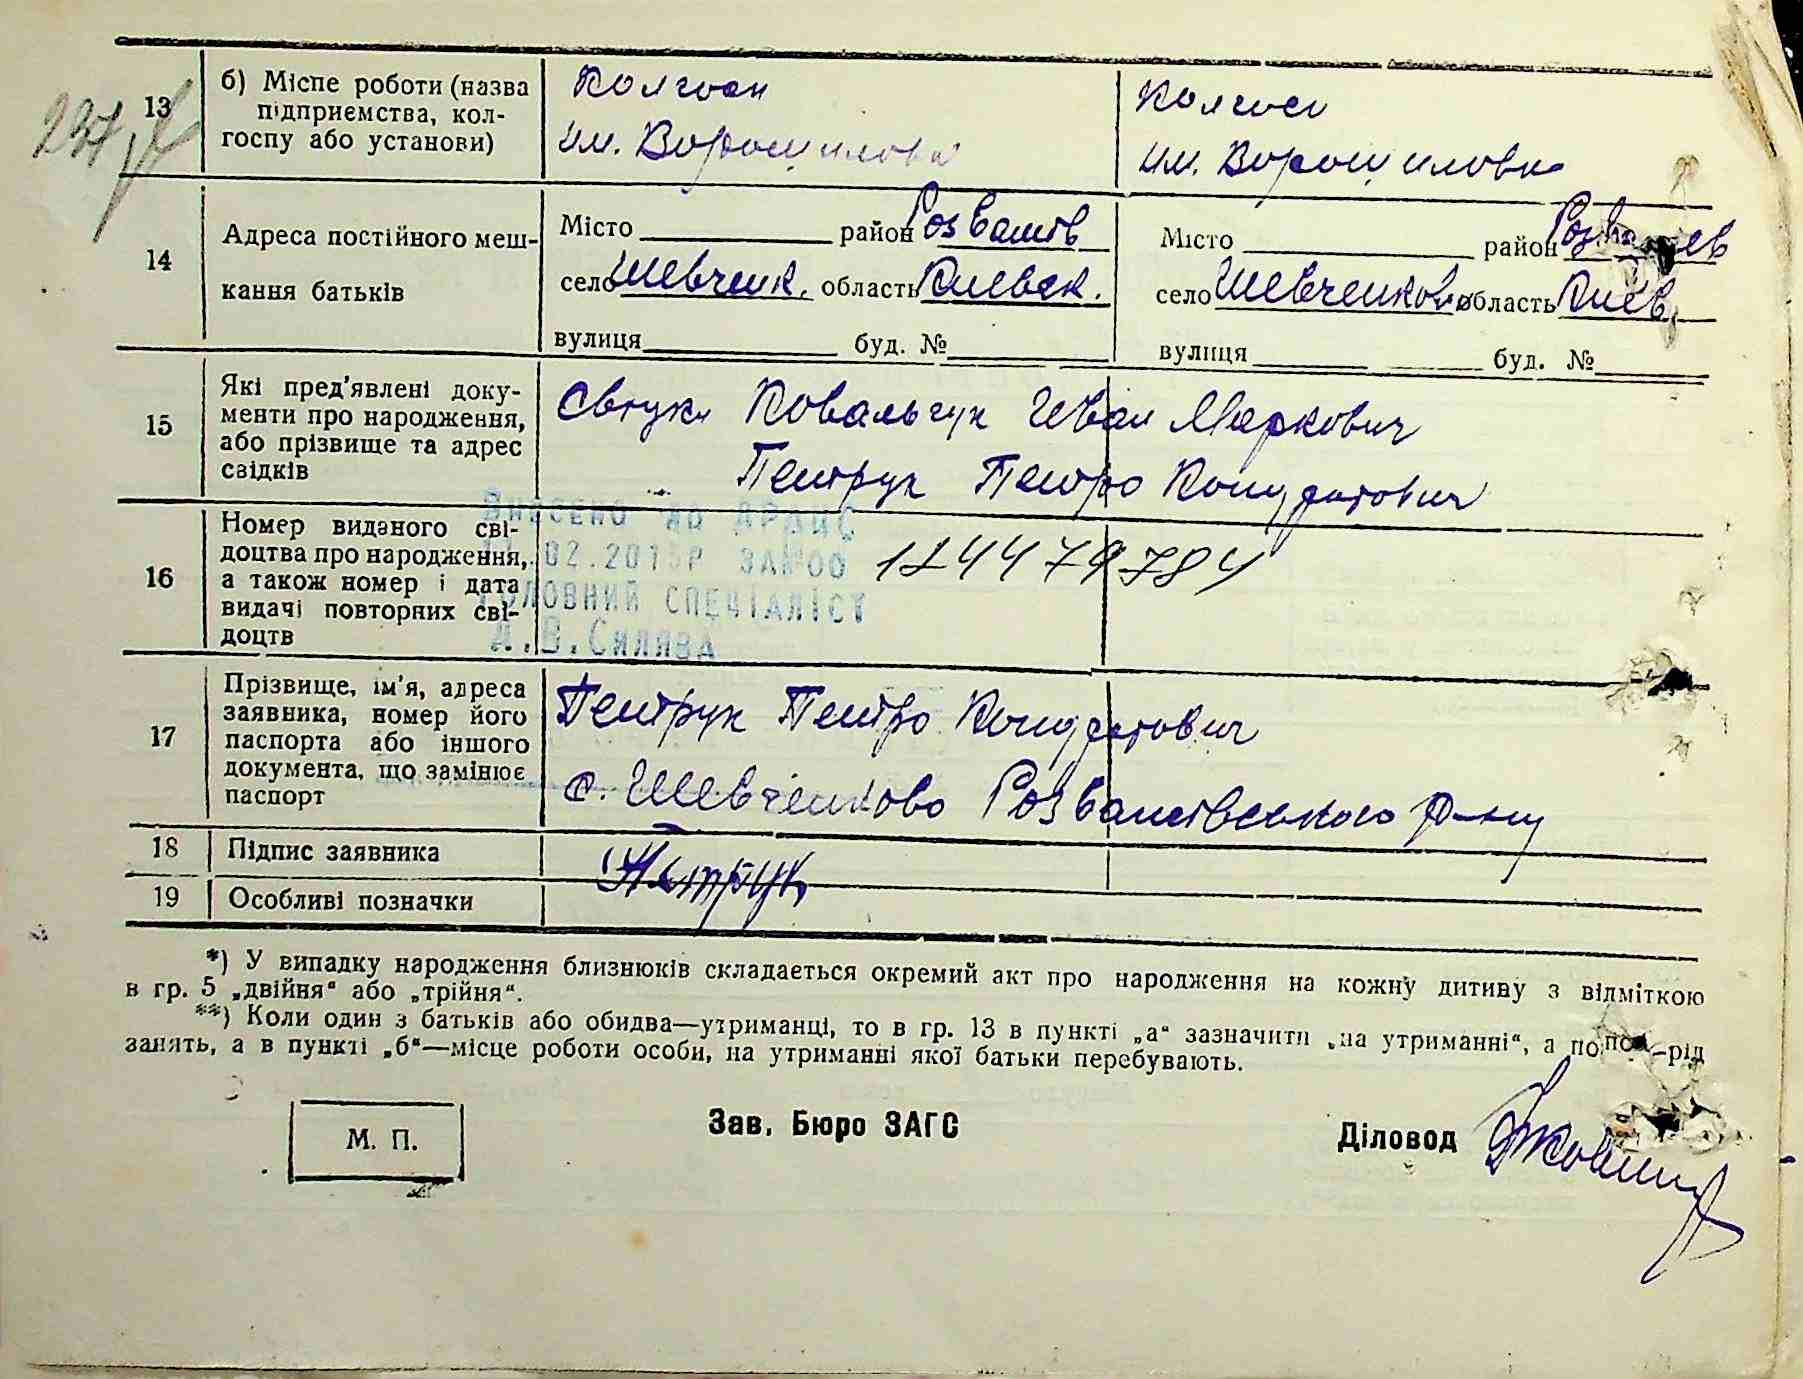 237
13
б) Місце роботи (назва
підприємства, кол-
госпу або установи)
Колгосп
им. Ворошилова
Колгосп
им. Ворошилова
14
Адреса постійного меш-
кання батьків
Місто район Розважів
село Шевченк. область Киевск.
вулиця буд. №
Місто район Розважев
село Шевченково область Киев.
вулиця буд. №
15
Які пред'явлені доку-
менти про народження,
або прізвище та адрес
свідків
Свідки Ковальчук Иван Маркович
Петрук Петро Кондратович
16
Номер виданого сві-
доцтва про народження,
а також номер і дата
видачі повторних сві-
доцтв
124479784
ВНЕСЕНО ДО ДРАЦС
02.2015Р ЗА № 00
ГОЛОВНИЙ СПЕЦІАЛІСТ
А.В.Силява
17
Прізвище, ім'я, адреса
заявника, номер його
паспорта або іншого
документа, що замінює
паспорт
Петрук Петро Кондратович
с. Шевченково Розважівського р-ну
18
Підпис заявника
Петрук
19
Особливі позначки
*) У випадку народження близнюків складається окремий акт про народження на кожну дитину з відміткою
в гр. 5 „двійня“ або „трійня“.
**) Коли один з батьків або обидва—утриманці, то в гр. 13 в пункті „а“ зазначити „на утриманні“, а попол-рід
занять, а в пункті „б“—місце роботи особи, на утриманні якої батьки перебувають.
М. П.
Зав. Бюро ЗАГС
Діловод